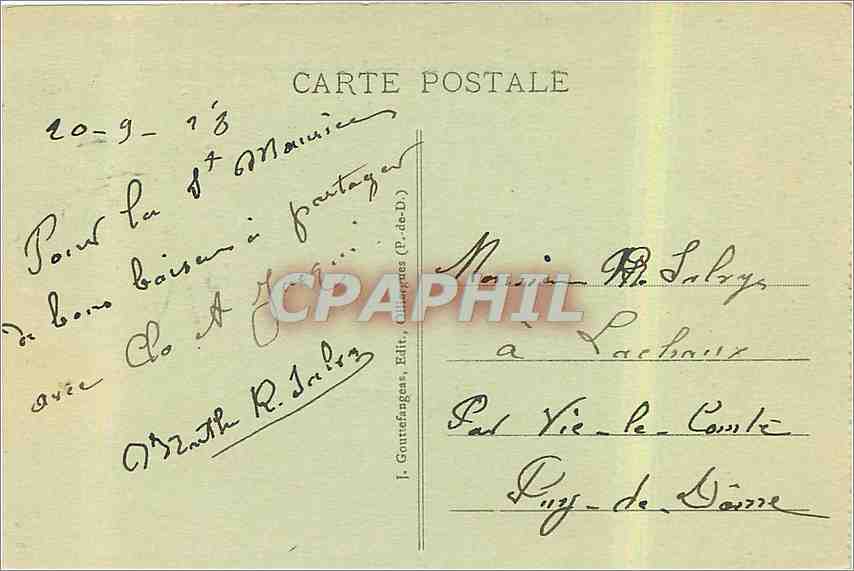 CARTE POSTALE
20-9-
Pour la St Maurice
bons baisers à partager
avec Clo et
R. Salvy
J. Gouttefangeas, Edit., Olliergues (P.-de-D.)
CPAPHIL
Monsieur R. Salvy
à Lachaux
Par Vic-le-Comte
Puy-de-Dôme